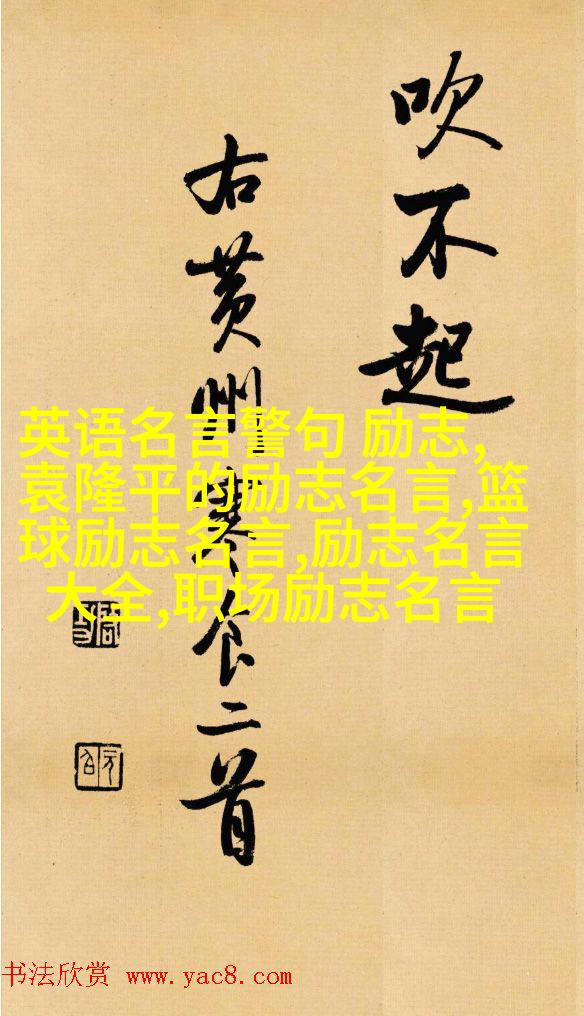 吹不起
右黄州寒食二首
英语名言警句 励志,
袁隆平的励志名言,篮
球励志名言,励志名言
大全,职场励志名言
书法欣赏 www.yac8.com